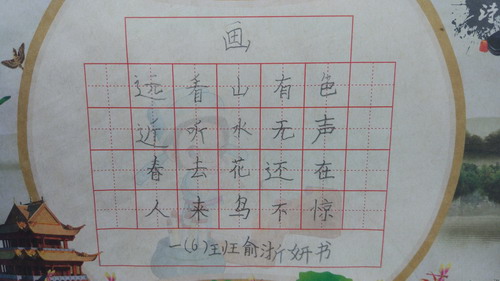 画
远看山有色
近听水无声
春去花还在
人来鸟不惊
一(6)班
书
诗